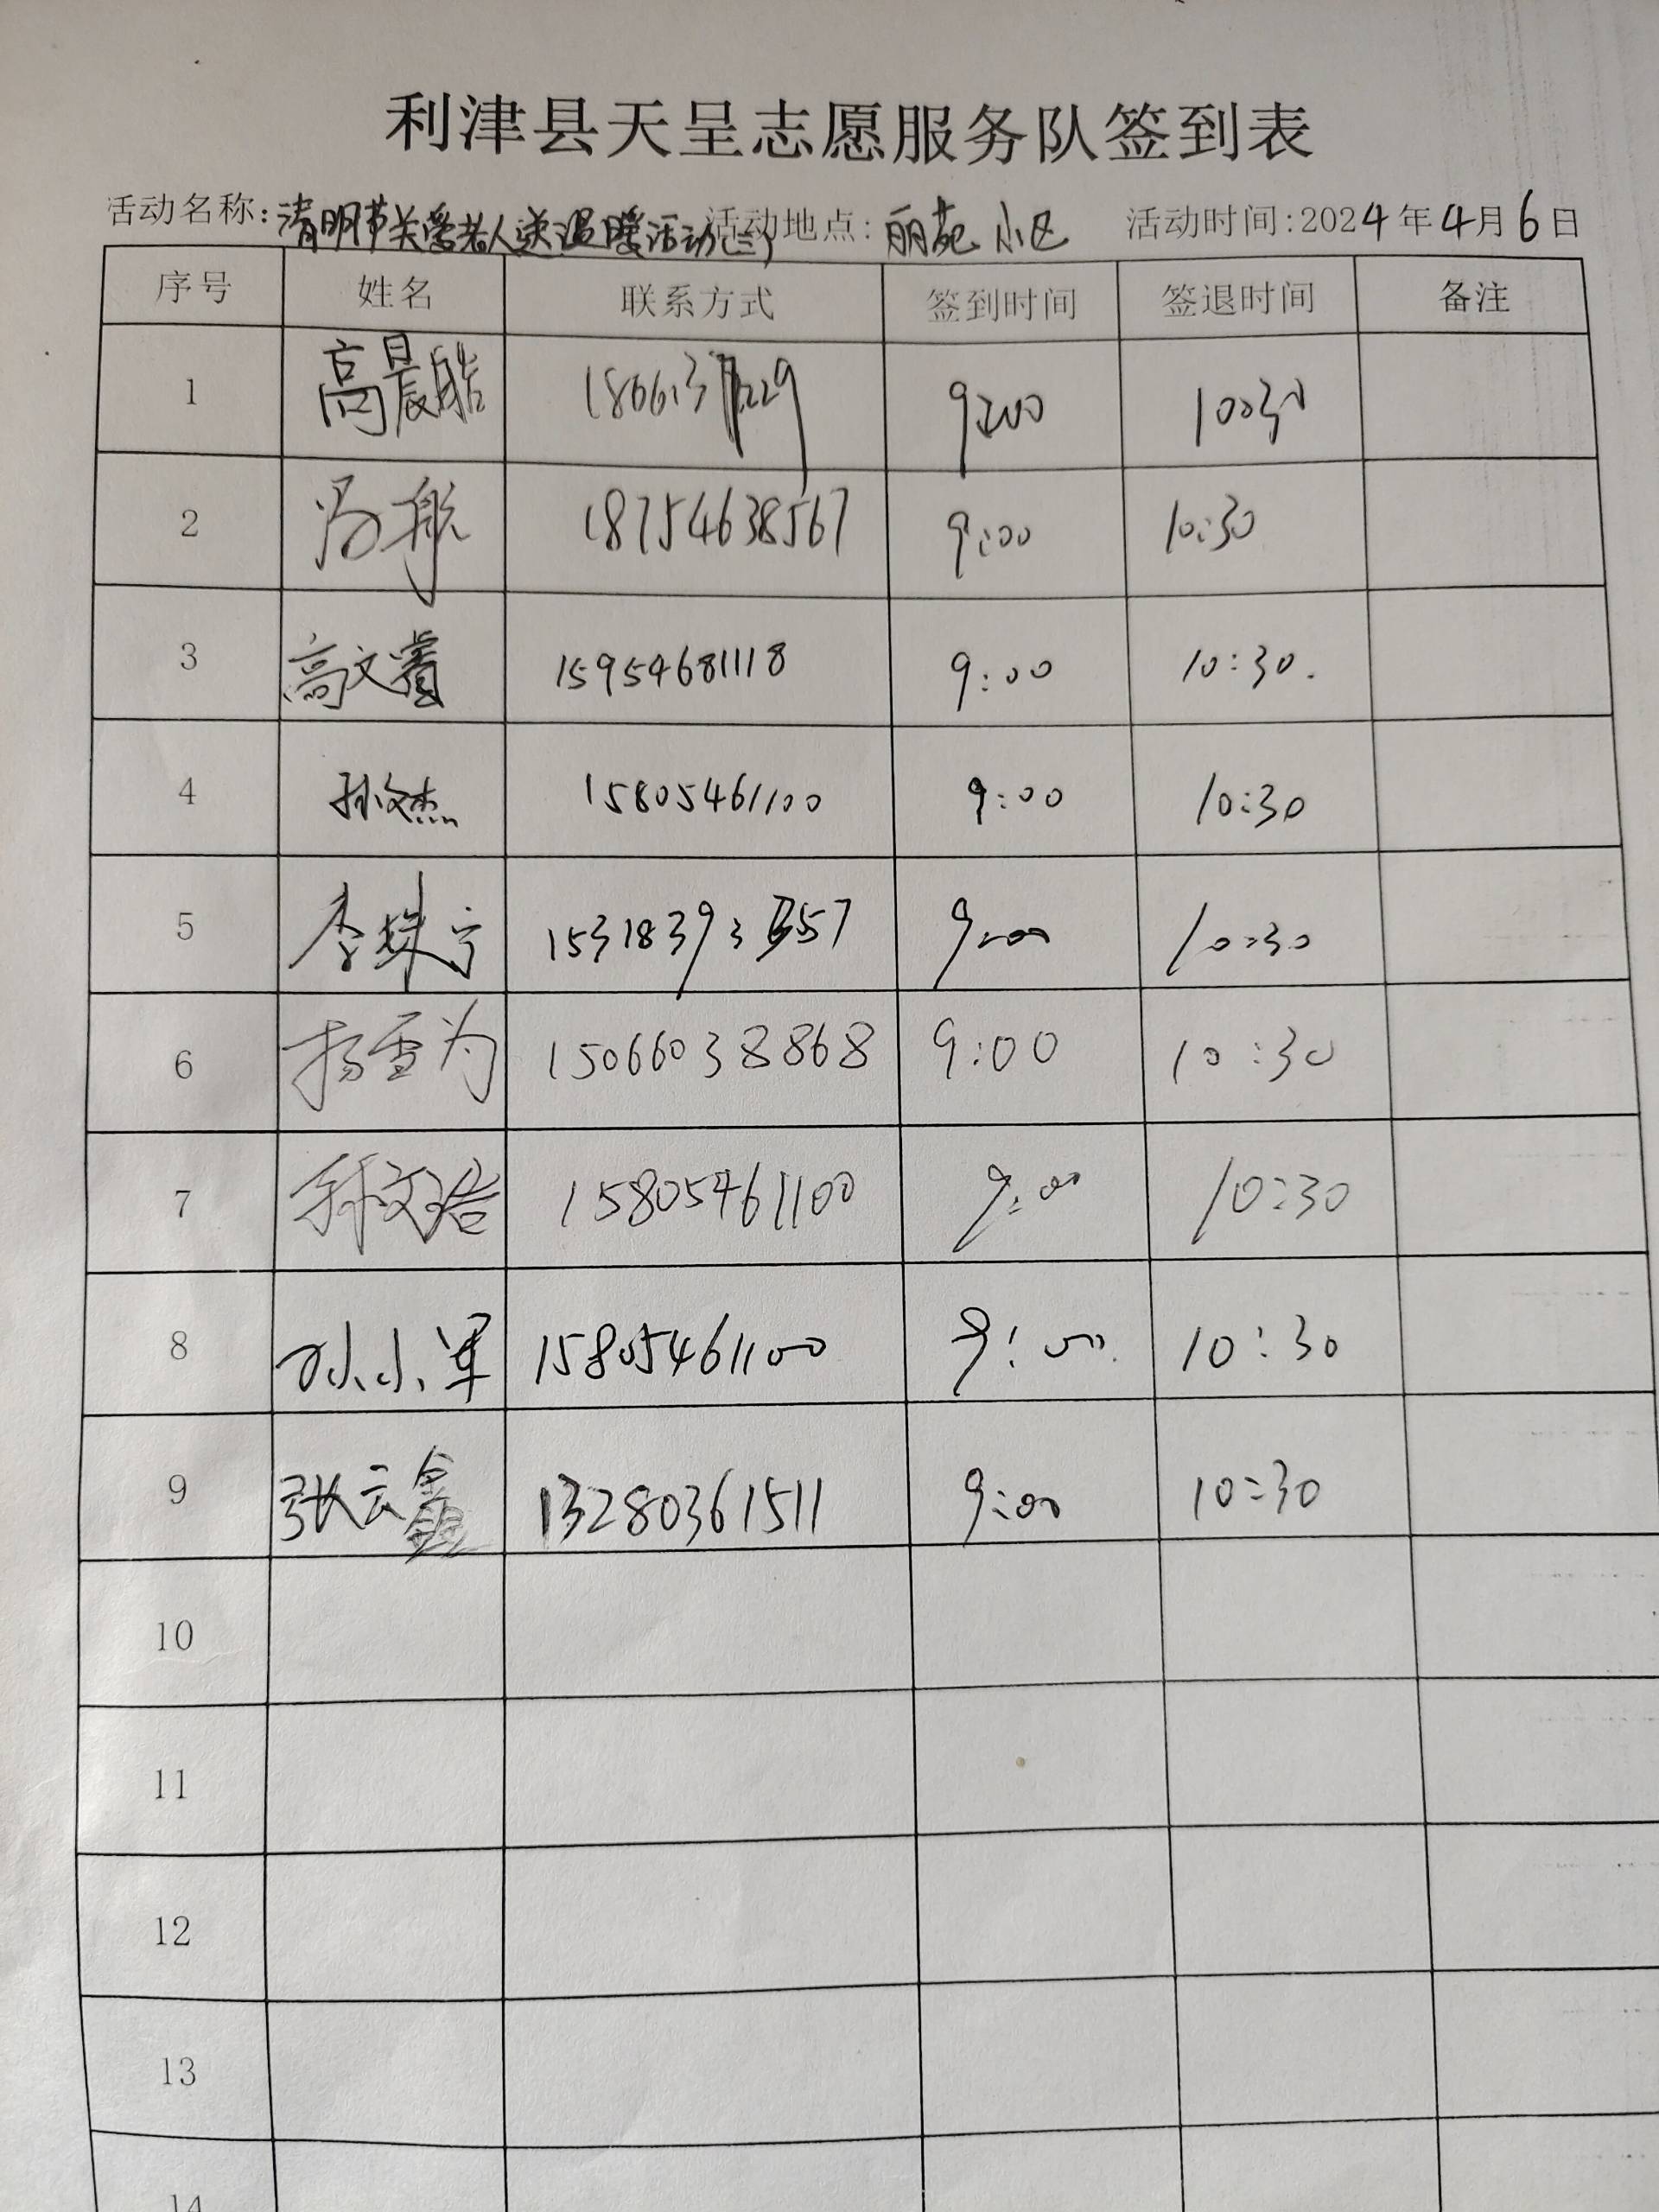 利津县天呈志愿服务队签到表
活动名称:清明节关爱老人送温暖活动(三) 活动地点:丽苑小区 活动时间:2024年4月6日
序号 姓名 联系方式 签到时间 签退时间 备注
1 高晨皓 9:00 10:30
2 冯航 18754638567 9:00 10:30
3 高文 15954681118 9:00 10:30.
4 孙文杰 15805461100 9:00 10:30
5 李姝宁 9:00 10:30
6 杨雪为 15066038868 9:00 10:30
7 孙文浩 15805461100 9:00 10:30
8 孙小军 15805461100 9:00 10:30
9 张云鑫 13280361511 9:00 10:30
10
11
12
13
14